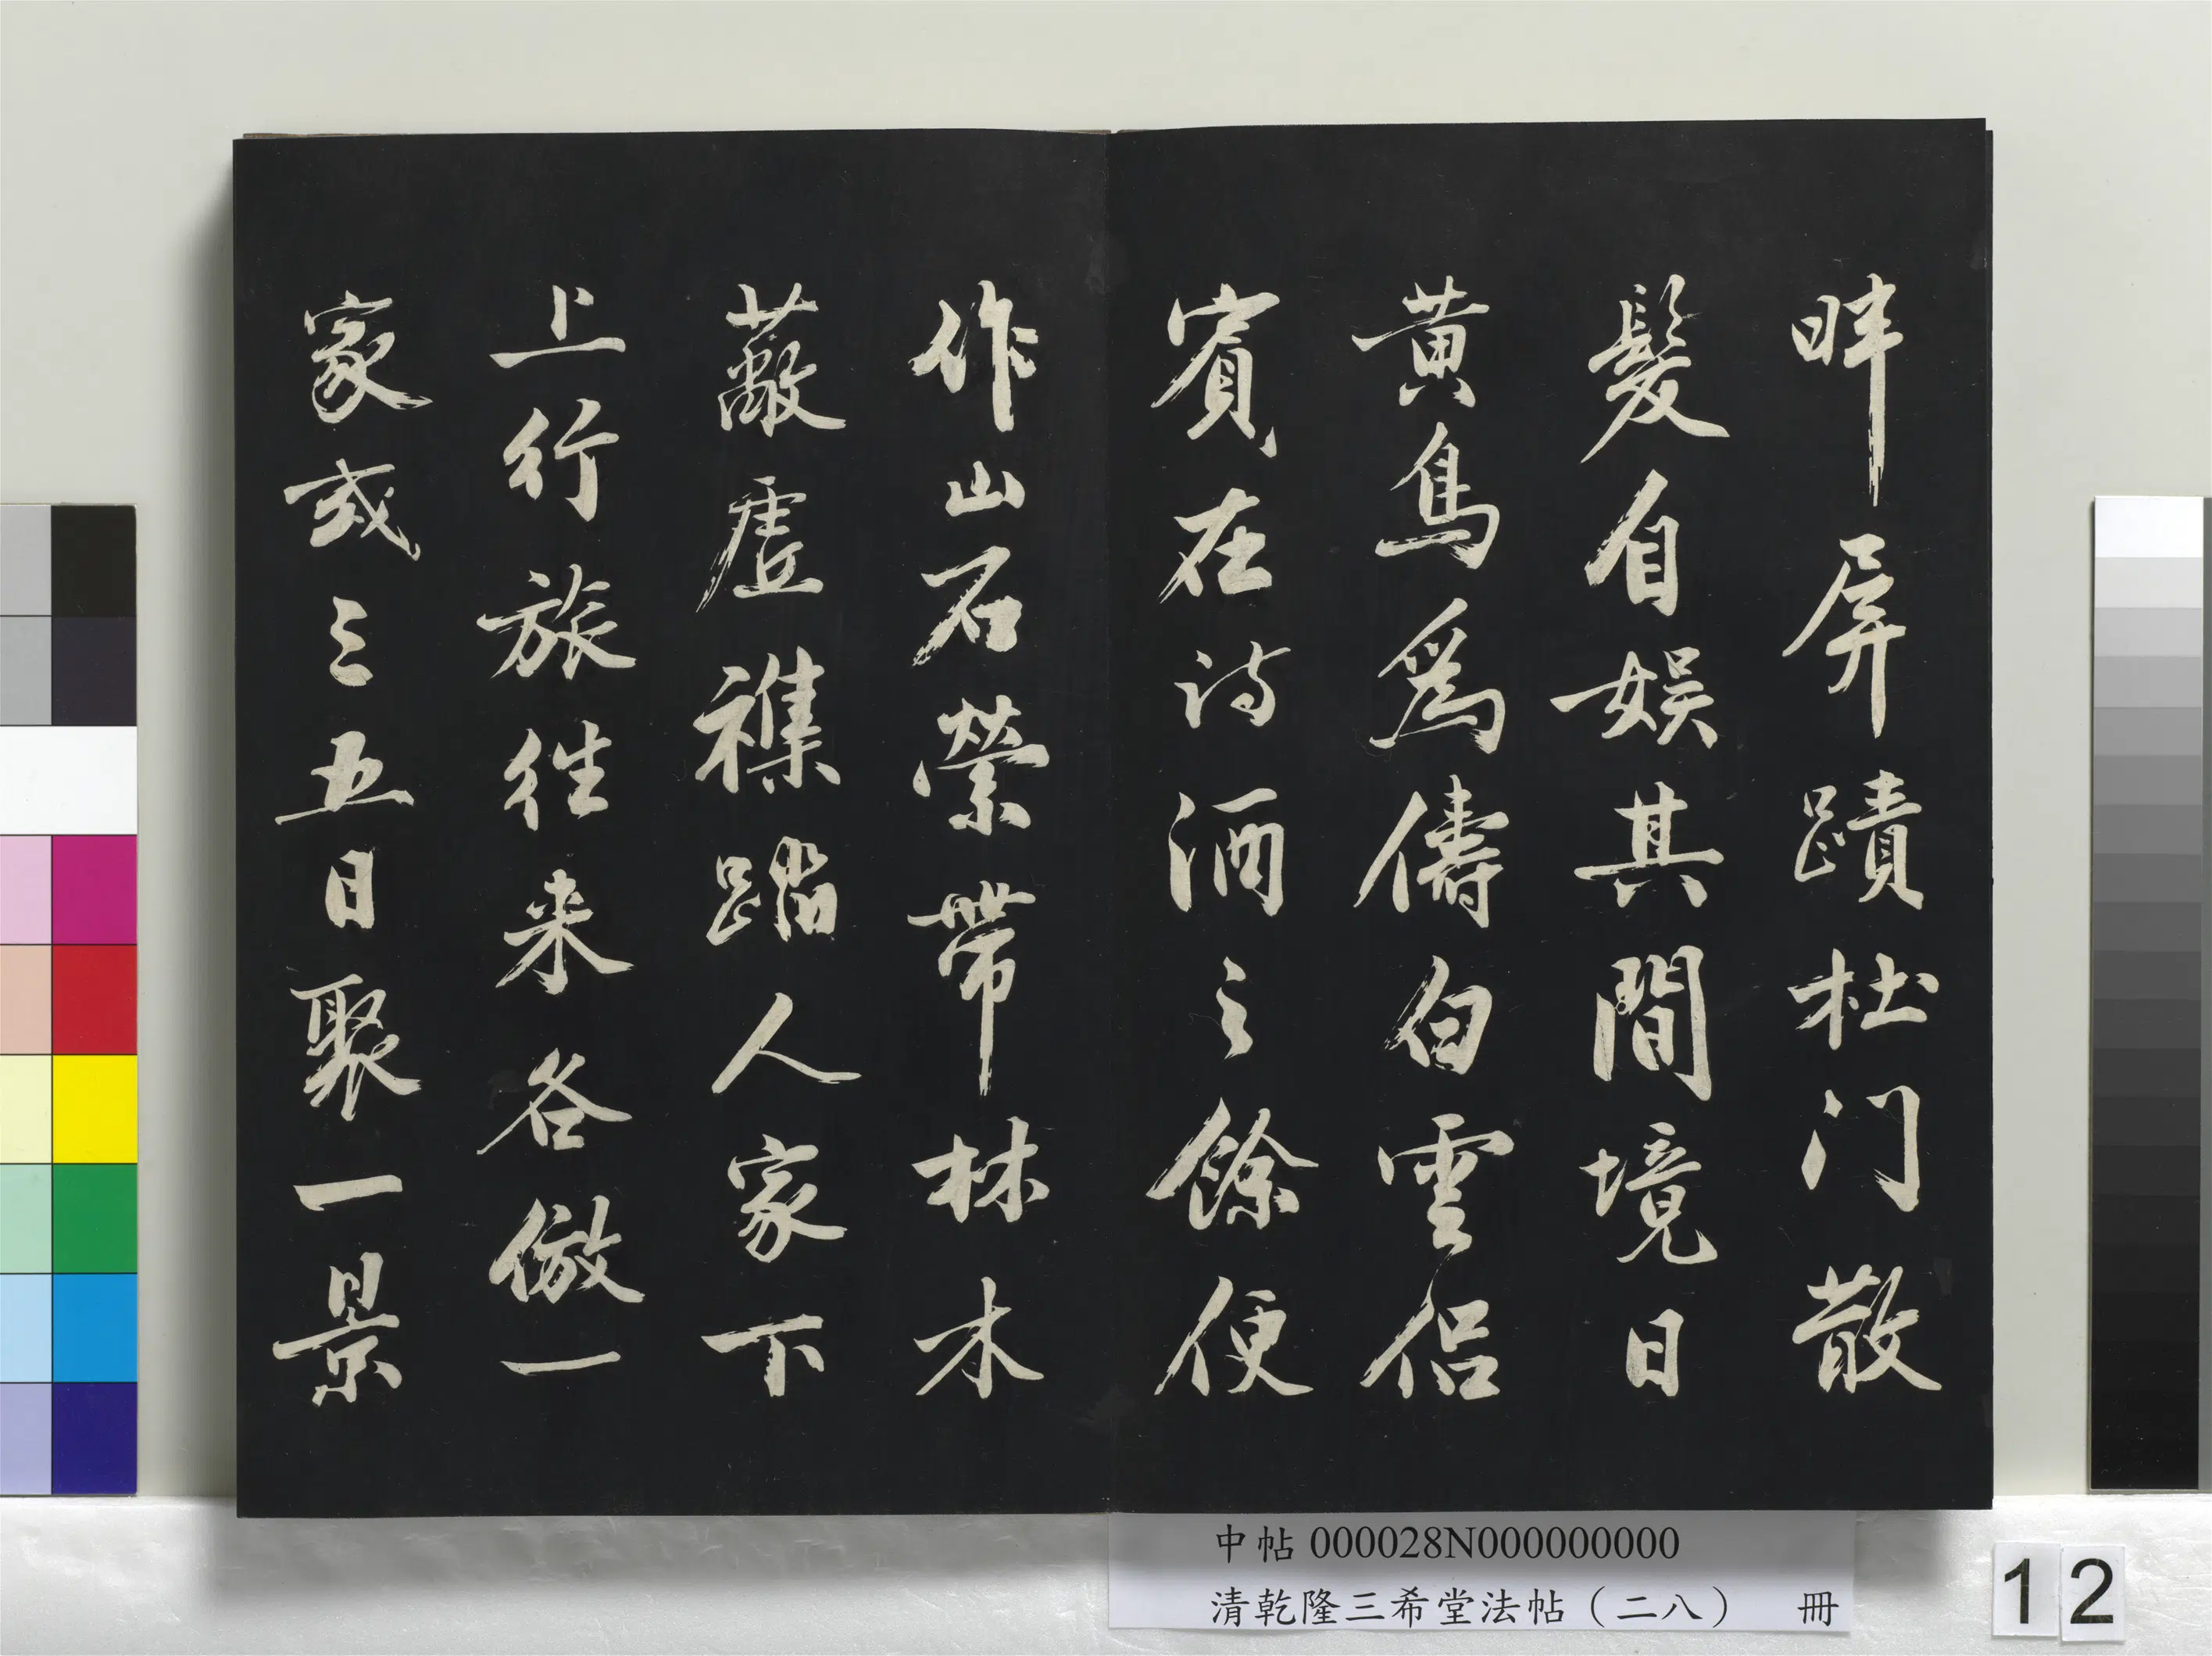 畔屏蹟杜门散
髮自娱其間境日
黄鳥爲儔白雲侣
賓在诗酒之餘便
作山石縈帶林木
蔽虗襍踏人家下
上行旅往来各倣一
家或三五日聚一景
中帖 000028N000000000
清乾隆三希堂法帖（二八） 冊
12